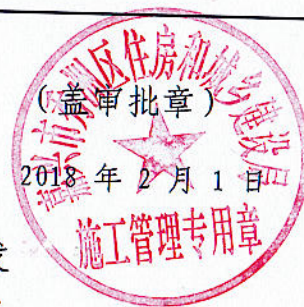 衡水市冀州区住房和城乡建设局
(盖审批章)
2018 年 2 月 1 日
施工管理专用章